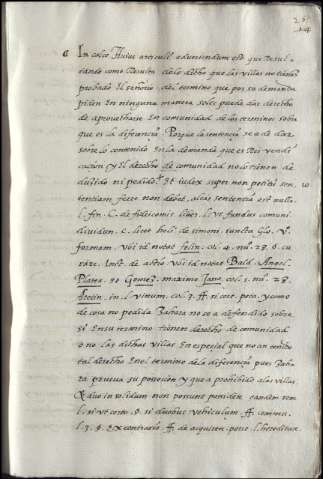 In calce huius articuli aduertendum est que Resul
tando como Resulta de lo dicho que las villas no tienen
probado El señorio del termino que por su demanda
piden En ninguna manera se les puede dar derecho
de aprovecharse En comunidad de los terminos sobre
que es la diferencia. Porque la sentencia se a de dar
sobre lo contenido En la demanda que es Rei vendi
cacion y El derecho de comunidad no lo tienen de
duzido ni pedido. Et iudex super non petitis sen
tentiam ferre non debet, alias sententia est nulla.
l. fin. C. de fideicomis. liber. l. ut fundus comuni
diuiden. c. licet heli de simoni.
formam. ubi id notat felin. col. 4. nu. 28. 6.
de actio. ubi id notat Bald. Angel.
Platea. Gomez. maximo Jaso. col. 1. nu. 28.
in l. vinum. col. 3. ff. si cert. peti. y como
de cosa no pedida Bañeza no se a defendido sobre
si En su termino tienen derecho de comunidad
o no las dichas villas En especial que no an tenido
tal derecho En el termino de la diferencia pues Ba
prueua su posesion y que a prohibido a las villas
duo in solidum non possunt posidere eamdem rem
l. si ut certo. §. si duobus vehiculum ff. commo.
l. 3. §. ex contrario. ff. de acquiren. poss. l.